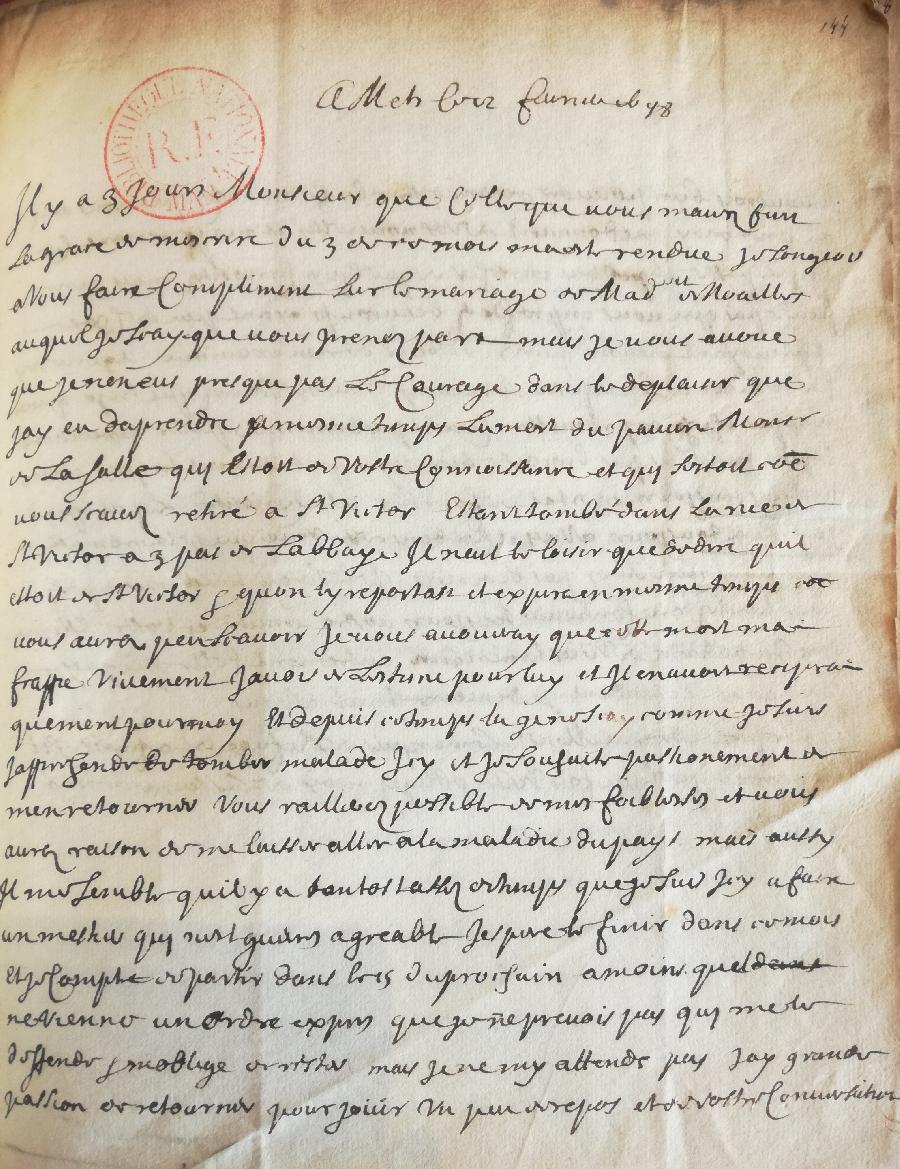 144
A Metz ce 12
BIBLIOTHEQUE NATIONALE R.F. MANUSCRITS
Il y a 3 Jours Monsieur que Celle que vous mavez fait
La grace de mescrire du 3 de ce mois ma este rendue Je songeois
a Vous faire Compliment sur le mariage de Mad^elle de Noailles
auquel Je scay que vous prenez part mais Je vous avoue
que Je nen eus presque pas Le Courage dans le deplaisir que
Jay eu daprendre en mesme temps La mort du pauvre Monsr
de La Salle qui Estoit de Vostre Connoissance et qui sestoit coe
vous scavez retiré a St Victor Estant tombé dans La rue de
St Victor a 3 pas de Labbaye Il neut le loisir que de dire quil
estoit de St Victor quon ly reportast et expira en mesme temps coe
vous aurez peu scavoir Je vous avoueray que cette mort ma
frappe Vivement Javois de Lestime pour luy et Il en avoit recipro
quement pour moy Et depuis ce temps la Je ne scay comme Je suis
Japprehende de tomber malade Icy et Je souhaite passionement de
men retourner Vous raillerez possible de mes foiblesses et vous
aurez raison de me laisser aller a la maladie du pays mais aussy
Il me semble quil y a tantost assez de temps que Je suis Icy a faire
un mestier qui nest guere agreable Jespere le finir dans ce mois
Et Je Compte de partir dans le 15 du prochain a moins quel
ne vienne un Ordre expres que Je ne prevois pas qui me le
deffende moblige de rester mais Je ne my attends pas Jay grande
passion de retourner pour Jouir Un peu de repos et de vostre Conversation